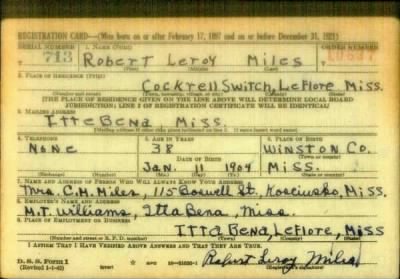 REGISTRATION CARD—(Men born on or after February 17, 1897 and on or before December 31, 1921)
SERIAL NUMBER 1. NAME (Print) ORDER NUMBER
713 Robert Leroy Miles
2. PLACE OF RESIDENCE (Print)
Cockrell Switch, Leflore Miss.
(Number and street) (Town, township, village, or city) (County) (State)
[THE PLACE OF RESIDENCE GIVEN ON THE LINE ABOVE WILL DETERMINE LOCAL BOARD
JURISDICTION; LINE 2 OF REGISTRATION CERTIFICATE WILL BE IDENTICAL]
3. MAILING ADDRESS
Itta Bena Miss.
[Mailing address if other than place indicated on line 2. If same insert word same]
4. TELEPHONE 5. AGE IN YEARS 6. PLACE OF BIRTH
None 38 Winston Co.
DATE OF BIRTH (Town or county)
Jan. 11 1904 Miss.
(Exchange) (Number) (Mo.) (Day) (Yr.) (State or country)
7. NAME AND ADDRESS OF PERSON WHO WILL ALWAYS KNOW YOUR ADDRESS
Mrs. C.M. Miles, 115 Boswell St. Kosciusko, Miss.
8. EMPLOYER'S NAME AND ADDRESS
M.T. Williams, Itta Bena, Miss.
9. PLACE OF EMPLOYMENT OR BUSINESS
Itta Bena, Leflore, Miss
(Number and street or R. F. D. number) (Town) (County) (State)
I AFFIRM THAT I HAVE VERIFIED ABOVE ANSWERS AND THAT THEY ARE TRUE.
D. S. S. Form 1
(Revised 1-1-42) Robert Leroy Miles